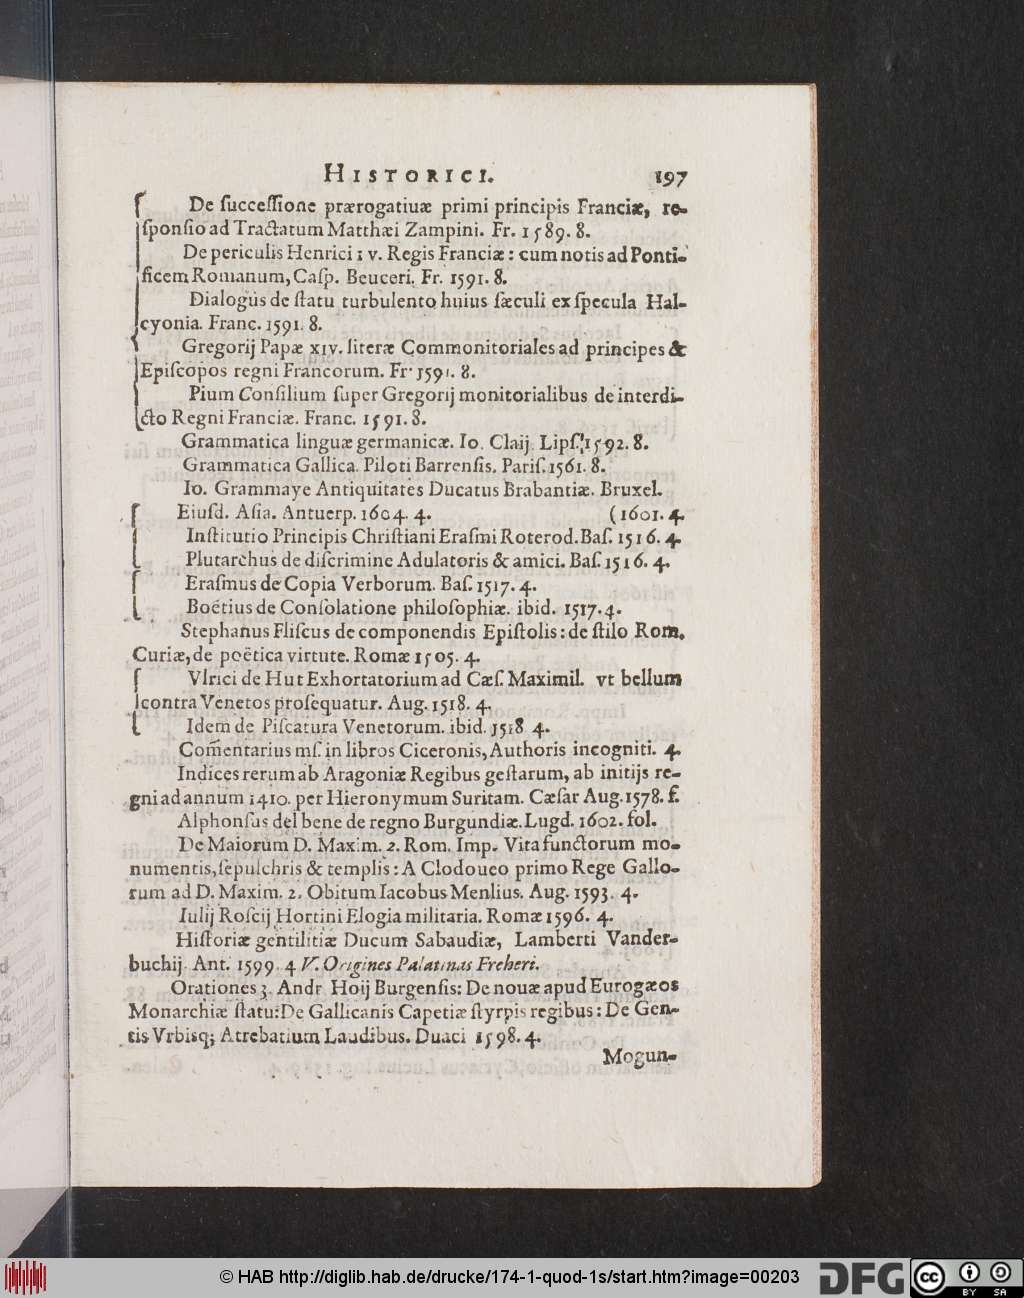 HISTORICI. 197
De ſucceſſione prærogatiuæ primi principis Franciæ, re-
ſponſio ad Tractatum Matthæi Zampini. Fr. 1589. 8.
De periculis Henrici iv. Regis Franciæ: cum notis ad Ponti-
ficem Romanum, Caſp. Beuceri. Fr. 1591. 8.
Dialogus de ſtatu turbulento huius ſæculi ex ſpecula Hal-
cyonia. Franc. 1591. 8.
Gregorij Papæ xiv. literæ Commonitoriales ad principes &
Epiſcopos regni Francorum. Fr. 1591. 8.
Pium Conſilium ſuper Gregorij monitorialibus de interdi-
cto Regni Franciæ. Franc. 1591. 8.
Grammatica linguæ germanicæ. Io. Claij. Lipſ. 1592. 8.
Grammatica Gallica. Piloti Barrenſis. Pariſ. 1561. 8.
Io. Grammaye Antiquitates Ducatus Brabantiæ. Bruxel.
Eiuſd. Aſia. Antuerp. 1604. 4. (1601. 4.
Inſtitutio Principis Chriſtiani Eraſmi Roterod. Baſ. 1516. 4.
Plutarchus de diſcrimine Adulatoris & amici. Baſ. 1516. 4.
Eraſmus de Copia Verborum. Baſ. 1517. 4.
Boëtius de Conſolatione philoſophiæ. ibid. 1517. 4.
Stephanus Fliſcus de componendis Epiſtolis: de ſtilo Rom.
Curiæ, de poëtica virtute. Romæ 1505. 4.
Vlrici de Hut Exhortatorium ad Cæſ. Maximil. vt bellum
contra Venetos proſequatur. Aug. 1518. 4.
Idem de Piſcatura Venetorum. ibid. 1518 4.
Com̃entarius mſ. in libros Ciceronis, Authoris incogniti. 4.
Indices rerum ab Aragoniæ Regibus geſtarum, ab initijs re-
gni ad annum 1410. per Hieronymum Suritam. Cæſar Aug. 1578. f.
Alphonſus del bene de regno Burgundiæ. Lugd. 1602. fol.
De Maiorum D. Maxim. 2. Rom. Imp. Vita functorum mo-
numentis, ſepulchris & templis: A Clodoueo primo Rege Gallo-
rum ad D. Maxim. 2. Obitum Iacobus Menlius. Aug. 1593. 4.
Iulij Roſcij Hortini Elogia militaria. Romæ 1596. 4.
Hiſtoriæ gentilitiæ Ducum Sabaudiæ, Lamberti Vander-
buchij. Ant. 1599. 4 V. Origines Palatinas Freheri.
Orationes 3. Andr. Hoij Burgenſis: De nouæ apud Eurogæos
Monarchiæ ſtatu: De Gallicanis Capetiæ ſtyrpis regibus: De Gen-
tis Vrbisq; Atrebatium Laudibus. Duaci 1598. 4.
Mogun-
© HAB http://diglib.hab.de/drucke/174-1-quod-1s/start.htm?image=00203
DFG
cc BY SA